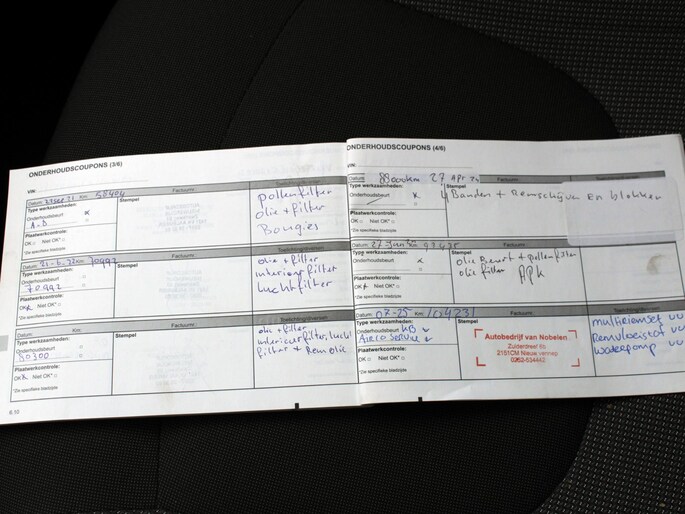 ONDERHOUDSCOUPONS (3/6)
VIN:
Datum: Km: 58404 Factuurnr.
Type werkzaamheden: Stempel
Onderhoudsbeurt X
A.D
Plaatwerkcontrole:
OK □ Niet OK* □
*Zie specifieke bladzijde
pollenfilter
olie + filter
Bougies
Datum: 21-6-22 Km: 70992 Factuurnr.
Type werkzaamheden: Stempel
Onderhoudsbeurt
70992
Plaatwerkcontrole:
OK Niet OK* □
*Zie specifieke bladzijde
olie + filter
interieurfilter
luchtfilter
Datum: Km: Factuurnr.
Type werkzaamheden: Stempel
Onderhoudsbeurt
80300
Plaatwerkcontrole:
OK Niet OK* □
*Zie specifieke bladzijde
olie + filter
interieurfilter, lucht
filter + Remolie
8.10
ONDERHOUDSCOUPONS (4/6)
VIN:
Datum: 88000km 27 Apr
Type werkzaamheden: Stempel
Onderhoudsbeurt X
Plaatwerkcontrole:
OK □ Niet OK* □
*Zie specifieke bladzijde
4 Banden + Remschijven En blokken
Datum: Factuurnr.
Type werkzaamheden: Stempel
Onderhoudsbeurt X
Plaatwerkcontrole:
OK Niet OK* □
*Zie specifieke bladzijde
olie Beurt + pollenfilter
olie filter APK
Datum: 07-25 Km: 104231 Factuurnr.
Type werkzaamheden: Stempel
Onderhoudsbeurt KB
Airco Service
Plaatwerkcontrole:
OK □ Niet OK* □
*Zie specifieke bladzijde
Autobedrijf van Nobelen
Zuiderdreef 6b
2151CM Nieuw vennep
0252-534442
multiriemset
Remvloeistof
Waterpomp